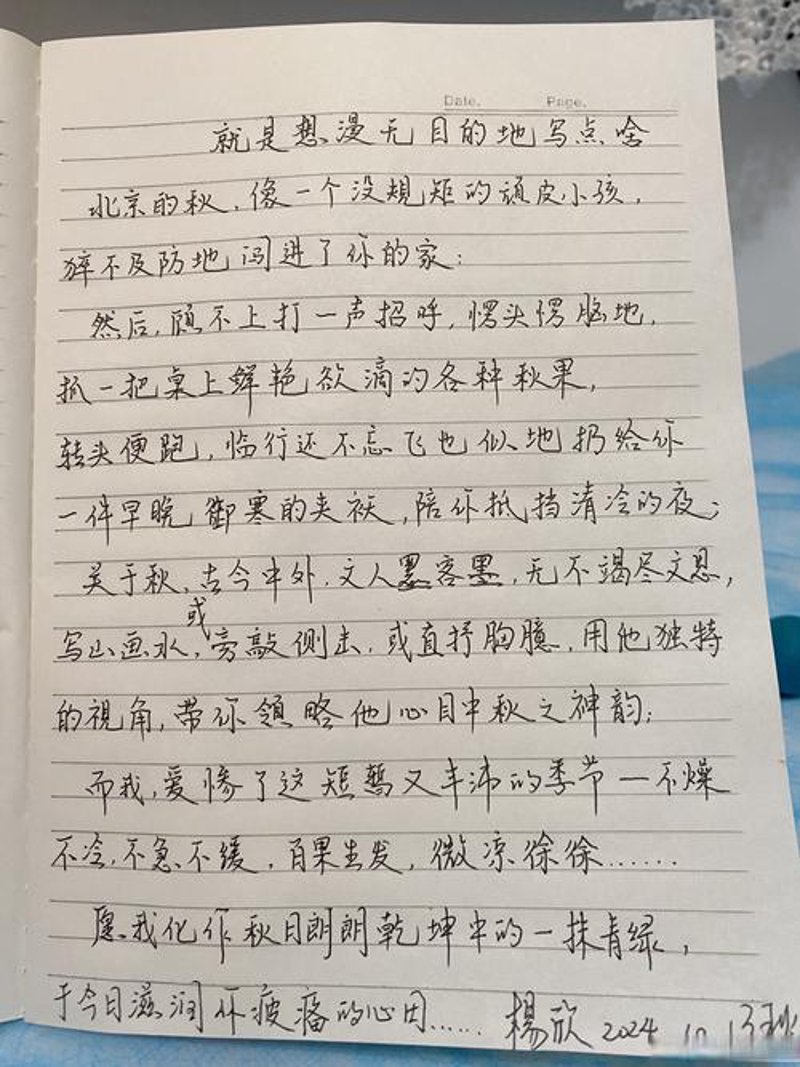 Date. Page.
就是想漫无目的地写点啥
北京的秋，像一个没规矩的顽皮小孩，
猝不及防地闯进了你的家；
然后，顾不上打一声招呼，愣头愣脑地，
抓一把桌上鲜艳欲滴的各种秋果，
转头便跑，临行还不忘飞也似地扔给你
一件早晚御寒的夹袄，陪你抵挡清冷的夜；
关于秋，古今中外，文人墨客墨，无不竭尽文思，
写山画水，或旁敲侧击，或直抒胸臆，用他独特
的视角，带你领略他心目中秋之神韵；
而我，爱惨了这短暂又丰沛的季节—不燥
不冷，不急不缓，百果生发，微凉徐徐……
愿我化作秋日朗朗乾坤中的一抹青绿，
于今日滋润你疲痛的心田…… 楊欣 2024